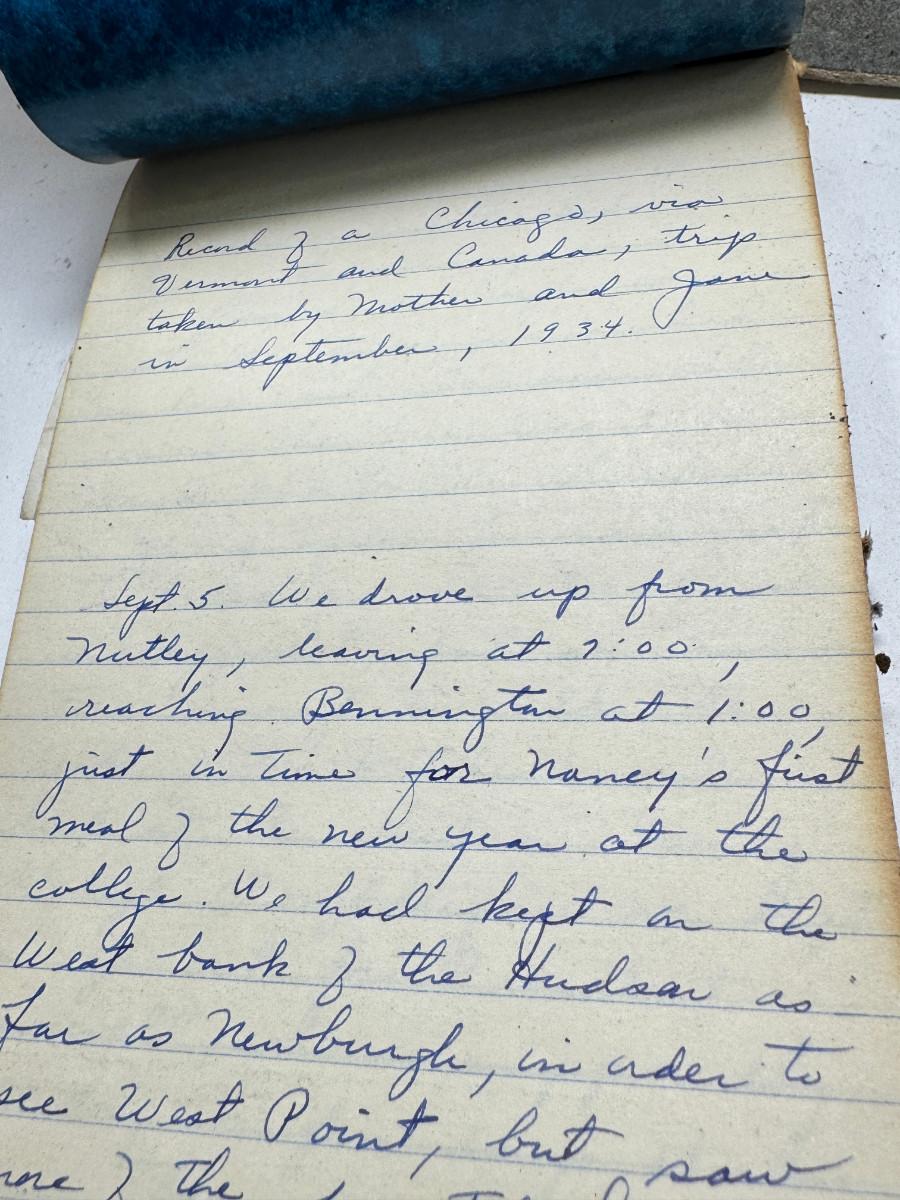 Record of a Chicago, via
Vermont and Canada, trip
taken by Mother and Jane
in September, 1934.
Sept. 5. We drove up from
Nutley, leaving at 7:00,
reaching Bennington at 1:00,
just in time for Nancy's first
meal of the new year at the
college. We had kept on the
West bank of the Hudson as
far as Newburgh, in order to
see West Point, but saw
more of the